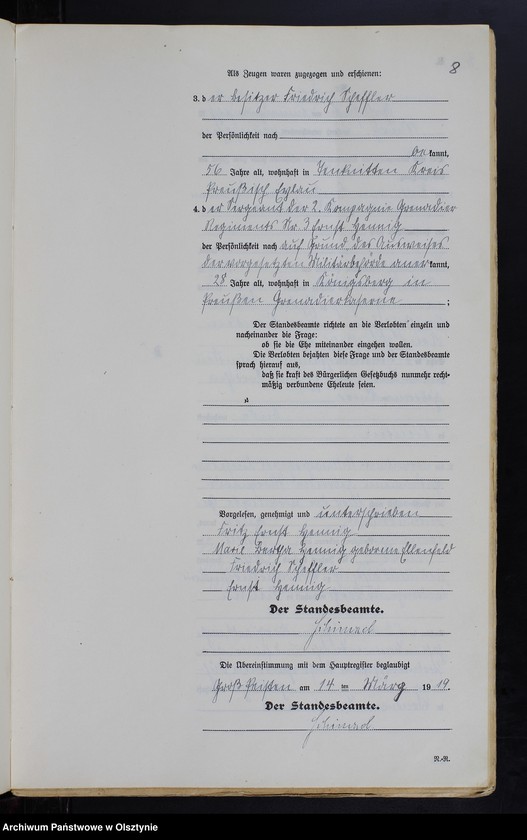 8
Als Zeugen waren zugezogen und erschienen:
3. d er Besitzer Friedrich Scheffler
der Persönlichkeit nach
be kannt,
56 Jahre alt, wohnhaft in Tenknitten Kreis
Preußisch Eylau
4. d er Sergeant der 2. Kompagnie Grenadier
Regiments Nr. 3 Ernst Hennig
der Persönlichkeit nach auf Grund des Ausweises
der vorgesetzten Militärbehörde aner kannt,
28 Jahre alt, wohnhaft in Königsberg in
Preußen Grenadierkaserne ;
Der Standesbeamte richtete an die Verlobten einzeln und
nacheinander die Frage:
ob sie die Ehe miteinander eingehen wollen.
Die Verlobten bejahten diese Frage und der Standesbeamte
sprach hierauf aus,
daß sie kraft des Bürgerlichen Gesetzbuchs nunmehr recht-
mäßig verbundene Eheleute seien.
Vorgelesen, genehmigt und unterschrieben
Fritz Ernst Hennig
Marie Bertha Hennig geborene Ellenfeld
Friedrich Scheffler
Ernst Hennig
Der Standesbeamte.
Die Übereinstimmung mit dem Hauptregister beglaubigt
Groß Peisten am 14 ten März 1919.
Der Standesbeamte.
N.-R.
Archiwum Państwowe w Olsztynie